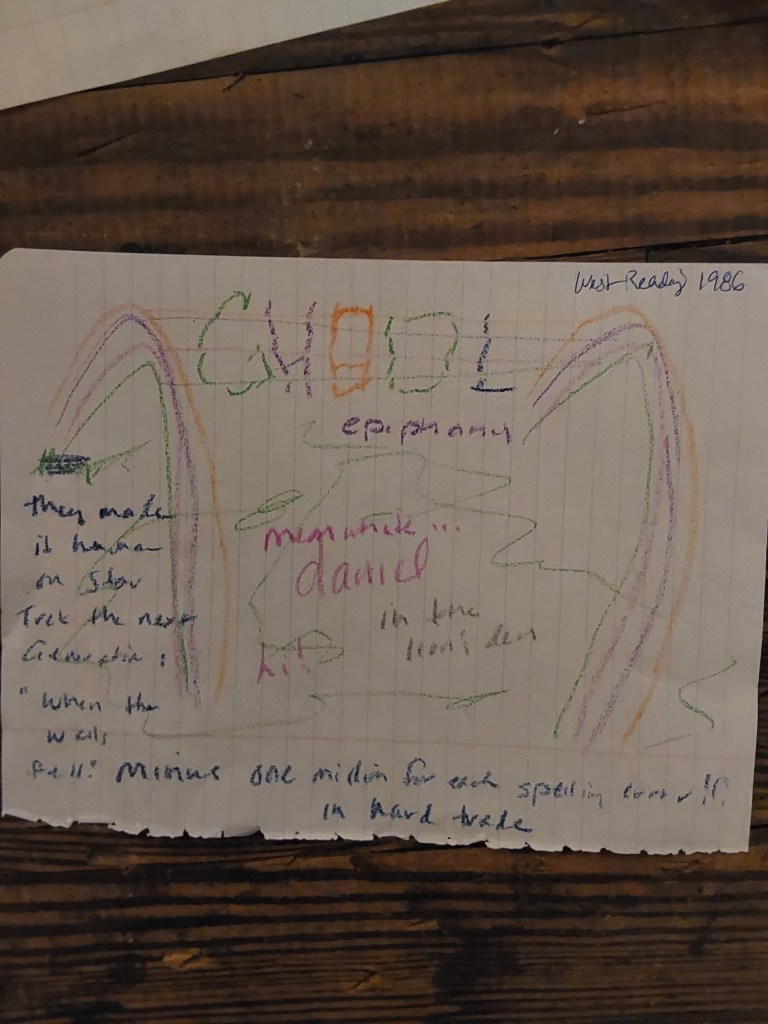 West Reading 1986
GHODL
epiphany
meanwhile...
daniel
in the
lion's den
hi!
they made
it human
on Star
Trek the next
Generation:
"When the
walls
fell." Minus one million for each spelling error!!!
in hard trade